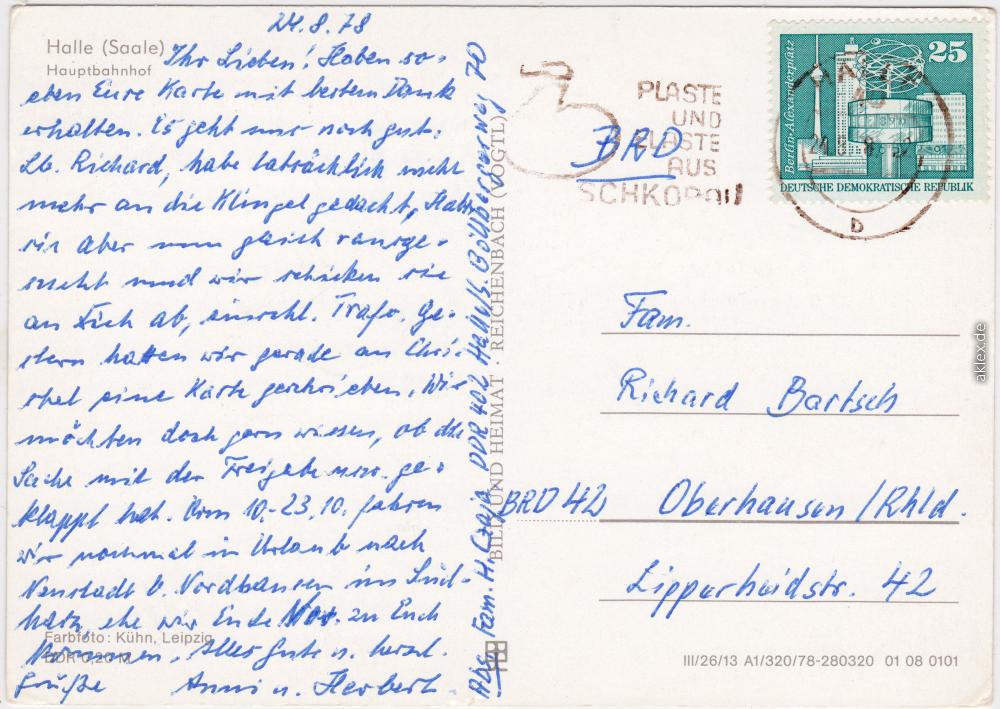 24.8.78
Halle (Saale)
Hauptbahnhof
Ihr Lieben! Haben so-
eben Eure Karte mit bestem Dank
erhalten. Es geht uns noch gut.
Lb. Richard, habe tatsächlich nicht
mehr an die Klingel gedacht, Habe
sie aber nun gleich rausge-
sucht und wir schicken sie
an Dich ab, einschl. Trafo. Ge-
stern hatten wir gerade an Chri-
stel eine Karte geschrieben. Wir
möchten doch gern wissen, ob die
Sache mit der Freigabe usw. ge-
klappt hat. Vom 10.-23.10. fahren
wir nochmal in Urlaub nach
Neustadt b. Nordhausen im Süd-
harz, ehe wir Ende Nov. zu Euch
kommen. Alles Gute u. herzl.
Grüße Anni u. Herbert.
Farbfoto: Kühn, Leipzig
DDR 0,20 M
Abs. Fam. H. Czaja DDR 402 Halle/S. Böllbergerweg 70
BILD UND HEIMAT · REICHENBACH (VOGTL)
PLASTE
UND
ELASTE
AUS
SCHKOPAU
BRD
25
Berlin-Alexanderplatz
DEUTSCHE DEMOKRATISCHE REPUBLIK
b
Fam.
Richard Bartsch
BRD 42 Oberhausen/Rhld.
Lipperheidstr. 42
III/26/13 A1/320/78-280320 01 08 0101
aklex.de